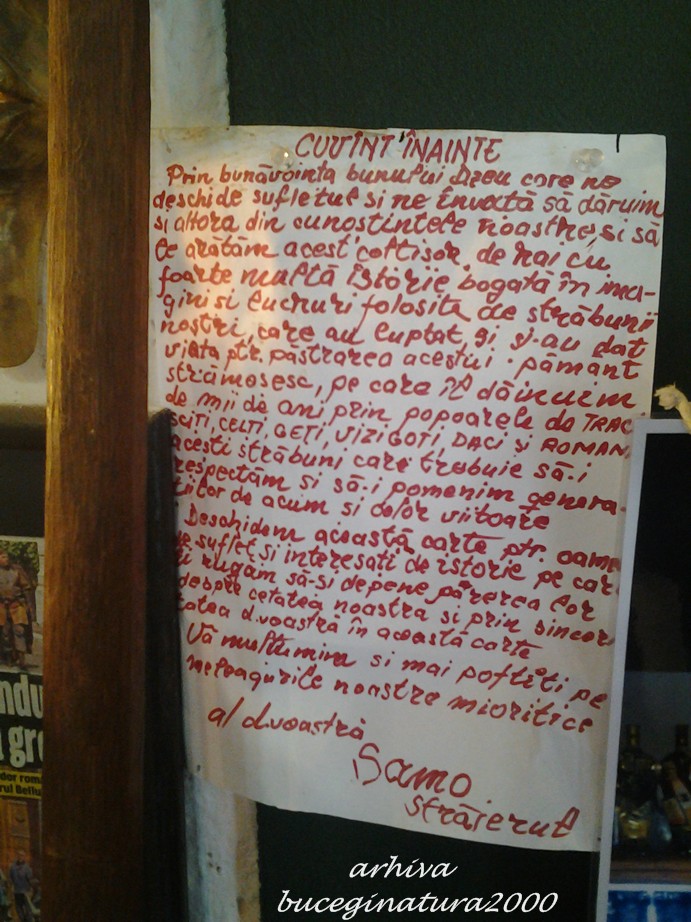 CUVÎNT ÎNAINTE
Prin bunăvointa bunului Dzeu care ne
deschide sufletul si ne învată să dăruim
si altora din cunostintele noastre, si să
le arătăm acest coltisor de rai cu
foarte multă istorie, bogată în ima-
gini si lucruri folosite de străbunii
nostri, care au luptat si si-au dat
viata ptr. păstrarea acestui pământ
strămosesc, pe care îl dăinuim
de mii de ani prin popoarele de TRAC
SCITI, CELTI, GETI, VIZIGOTI, DACI si ROMAN
acesti străbuni care trebuie să-i
respectăm si să-i pomenim genera-
tiilor de acum si celor viitoare
Deschidem această carte ptr. oame
de suflet si interesati de istorie pe car
îi rugăm să-si depene părerea lor
despre cetatea noastra si prin sincer
tatea d.voastră în această carte
Vă multumim si mai poftiti pe
meleagurile noastre mioritice
al d.voastră
Samo
străjerul
ndu
gro
dor rom
rul Bellu
arhiva
buceginatura2000